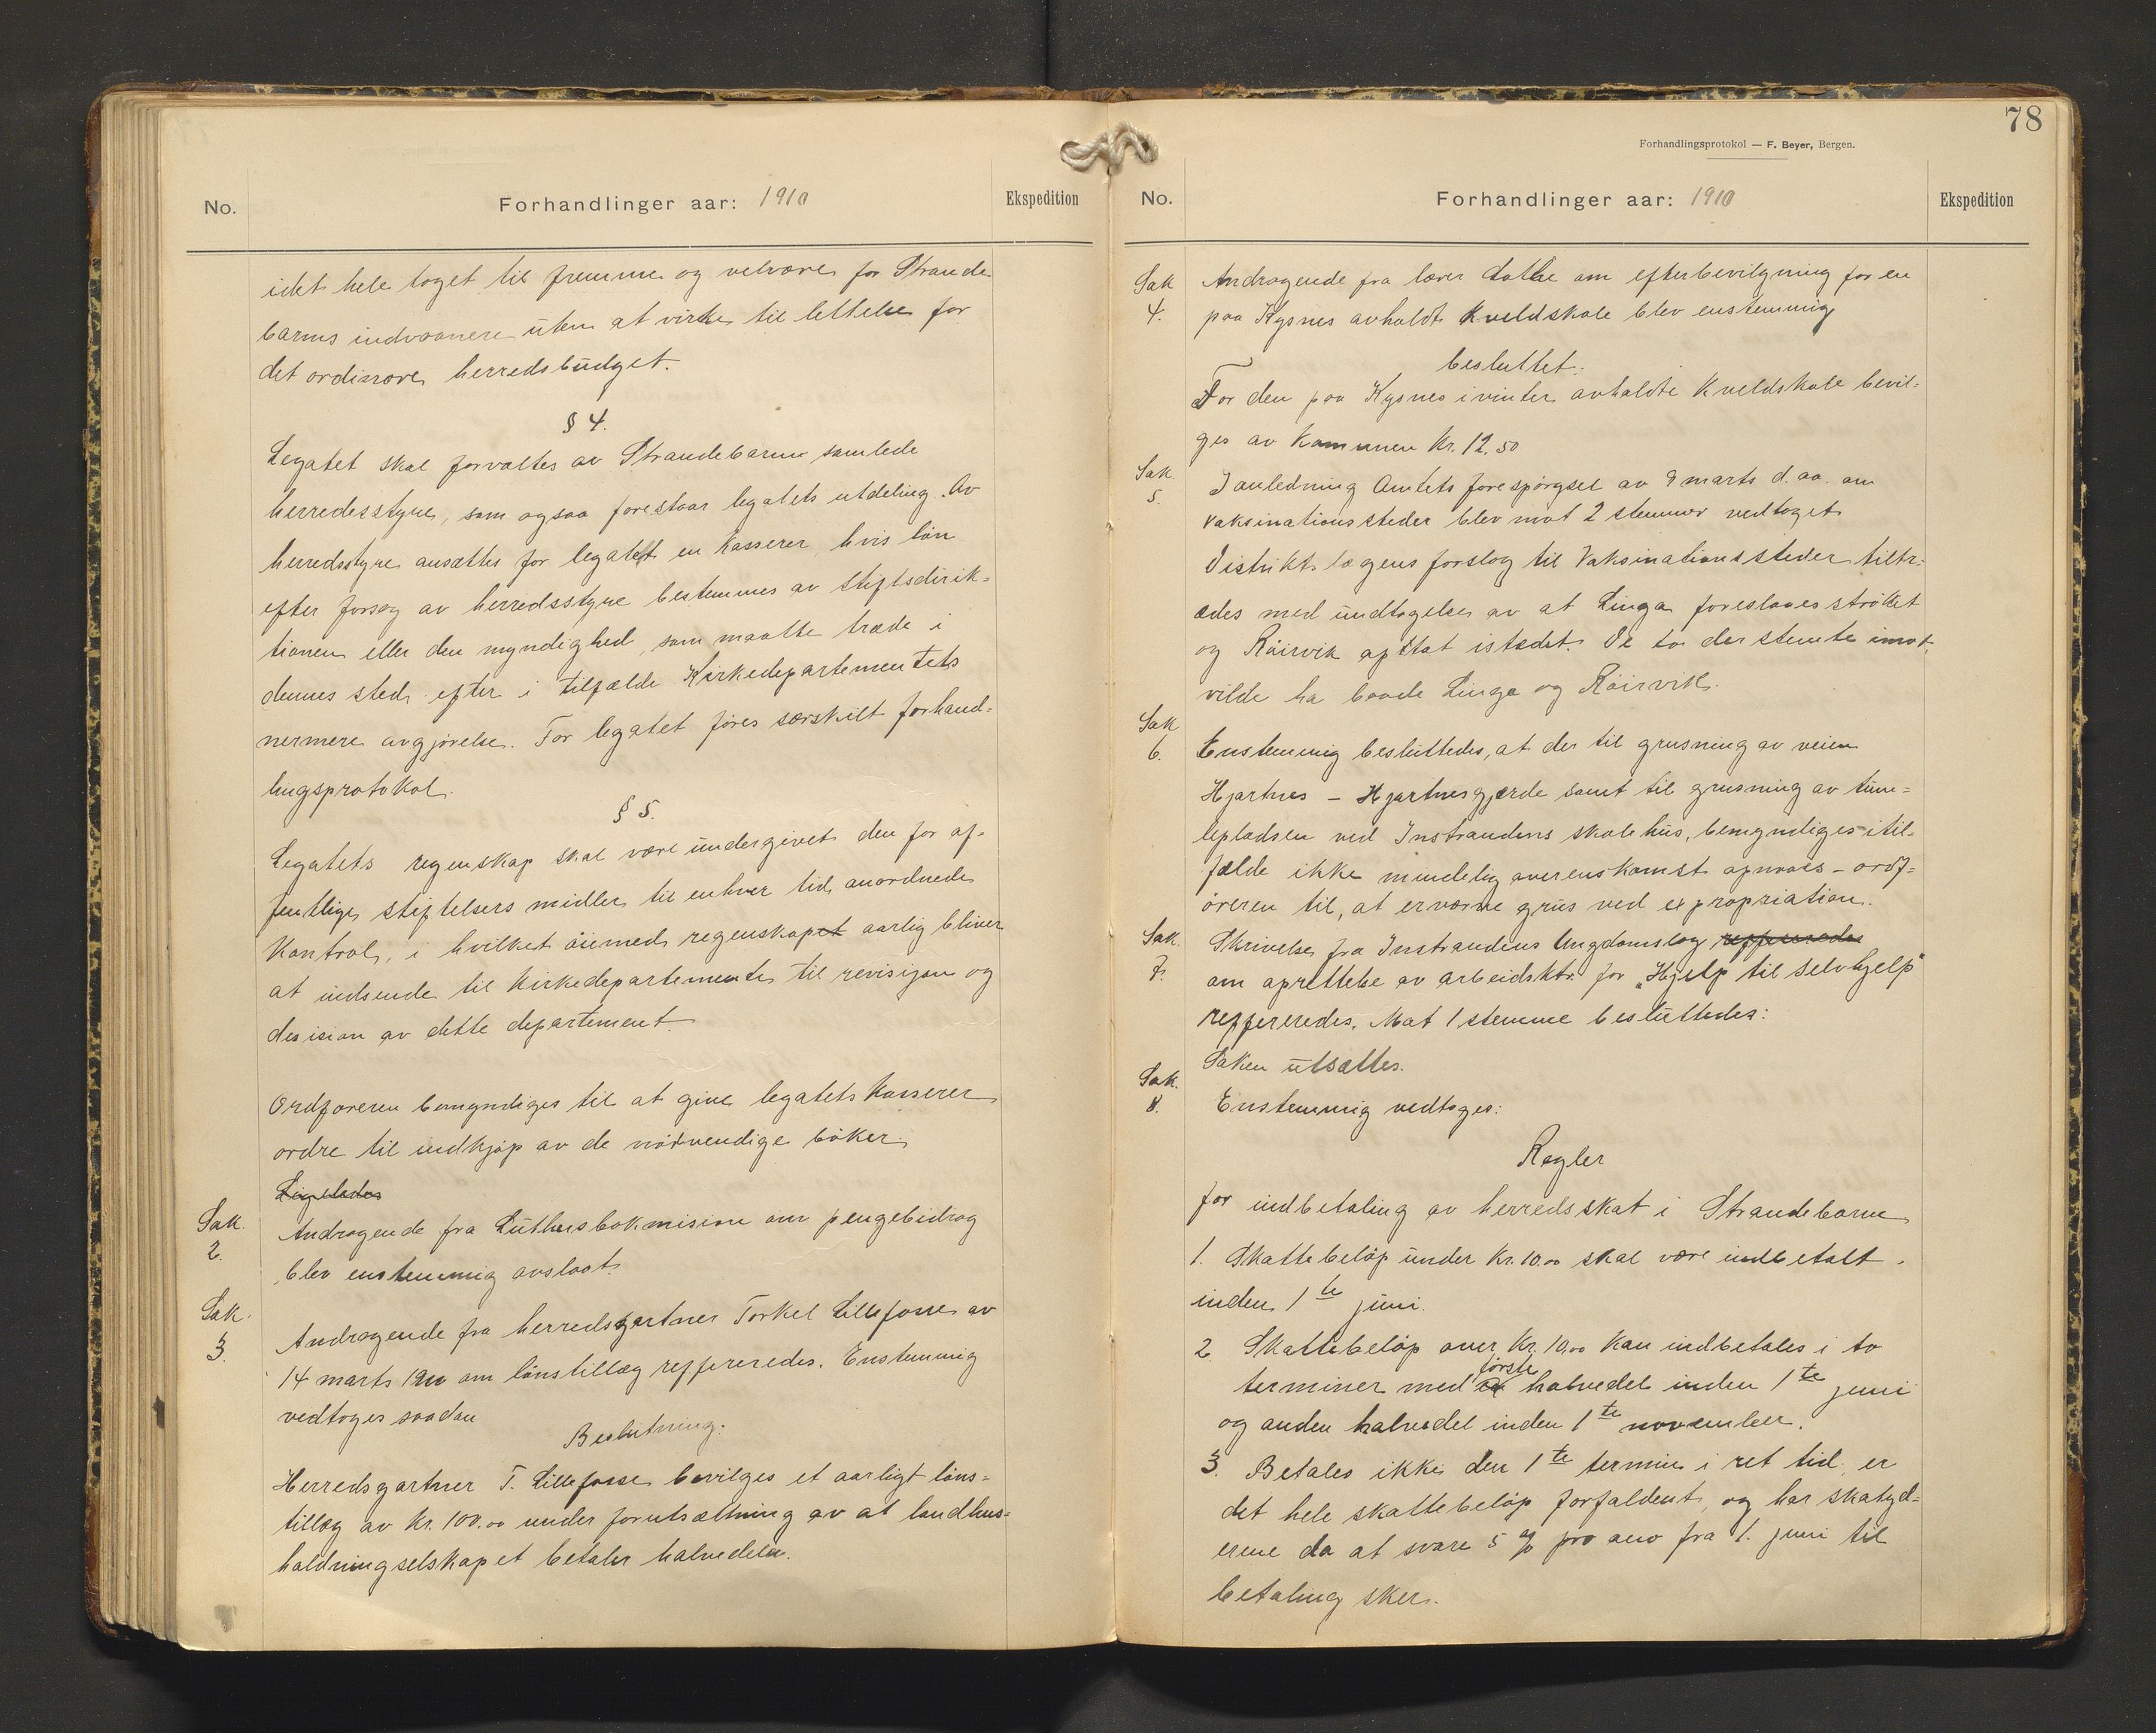 No.
Forhandlinger aar: 1910
Ekspedition
idet hele taget til fremme og velvære for Strande
barms indvaanere uten at virke til lettelse for
det ordinære herredsbudget.
§ 4.
Legatet skal forvaltes av Strandebarm samlede
herredesstyre, som ogsaa forestaar legatets utdeling. Av
herredsstyre ansættes for legatet en Kasserer, hvis løn
efter forsag av herredsstyre bestemmes av stiftsdirik=
tionen eller den myndighed, som maatte træde i
dennes sted efter i tilfælde Kirkedepartementets
nermere avgjørelse. For legatet føres særskilt forhand=
lingsprotokol.
§ 5.
Legatets regenskap skal være undergivet den for of=
fentlige stiftelsers midler til enhver tid anordnede
Kontrol, i hvilket øiemed regenskapet aarlig bliver
at indsende til Kirkedepartemente til revisjon og
desision av dette departement.
Ordføreren bemyndiges til at give legatets Kasserer
ordre til indkjøp av de nødvendige bøker.
Ligeledes
Sak.
2.
Andragende fra Luthers bokmision om pengebidrag
blev enstemmig avslaat.
Sak.
3.
Andragende fra herredsgartner Torkel Lillefosse av
14 marts 1910 om lønstillæg reffereredes. Enstemmig
vedtoges saadan
Beslutning:
Herredsgartner T. Lillefosse bevilges et aarligt løns=
tillæg av Kr. 100.00 under forutsætning av at landhus=
holdningselskapet betaler halvedelen.
78
Forhandlingsprotokol — F. Beyer, Bergen.
No.
Forhandlinger aar: 1910
Ekspedition
Sak
4.
Andragende fra lærer Lothe om efterbevilgning for en
paa Kysnes avholdt Kveldskole blev enstemmig
besluttet:
For den paa Kysnes i vinter avholdte Kveldskole bevil=
ges av Kommunen Kr. 12.50
Sak
5.
I anledning Amtets forespørgsel av 9 marts d. aa. om
vaksinationssteder blev mot 2 stemmer vedtaget
Distriktslægens forslag til Vaksinationssteder tiltr=
ædes med undtagelse av at Linga foreslaaes strøket
og Røirvik opstat istedet. De to der stemte imot,
vilde ha baade Linga og Røirvik.
Sak
6.
Enstemmig besluttedes, at der til grusning av veien
Hjartnes – Hjartnesgjerde samt til grusning av tum=
lepladsen ved Instrandens skolehus, bemyndiges – i til=
fælde ikke mindelig overenskomst opnaaes – ordf=
øreren til, at erværve grus ved expropriation.
Sak.
7.
Skrivelse fra Instrandens Ungdomslag reffereredes
om oprettelse av arbeidsktr. for "Hjelp til selvhjelp"
reffereredes. Mot 1 stemme besluttedes:
Saken utsættes.
Sak.
8.
Enstemmig vedtoges:
Regler
for indbetaling av herredsskat i Strandebarm
1. Skattebeløp under Kr. 10.00 skal være indbetalt
inden 1te juni.
2. Skattebeløp over Kr. 10.00 kan indbetales i to
terminer med første halvedel inden 1te juni
og anden halvedel inden 1te november.
3. Betales ikke den 1te termin i ret tid, er
det hele skattebeløp forfaldent, og har skatyd=
erene da at svare 5 % pro ano fra 1. juni til
betaling sker.